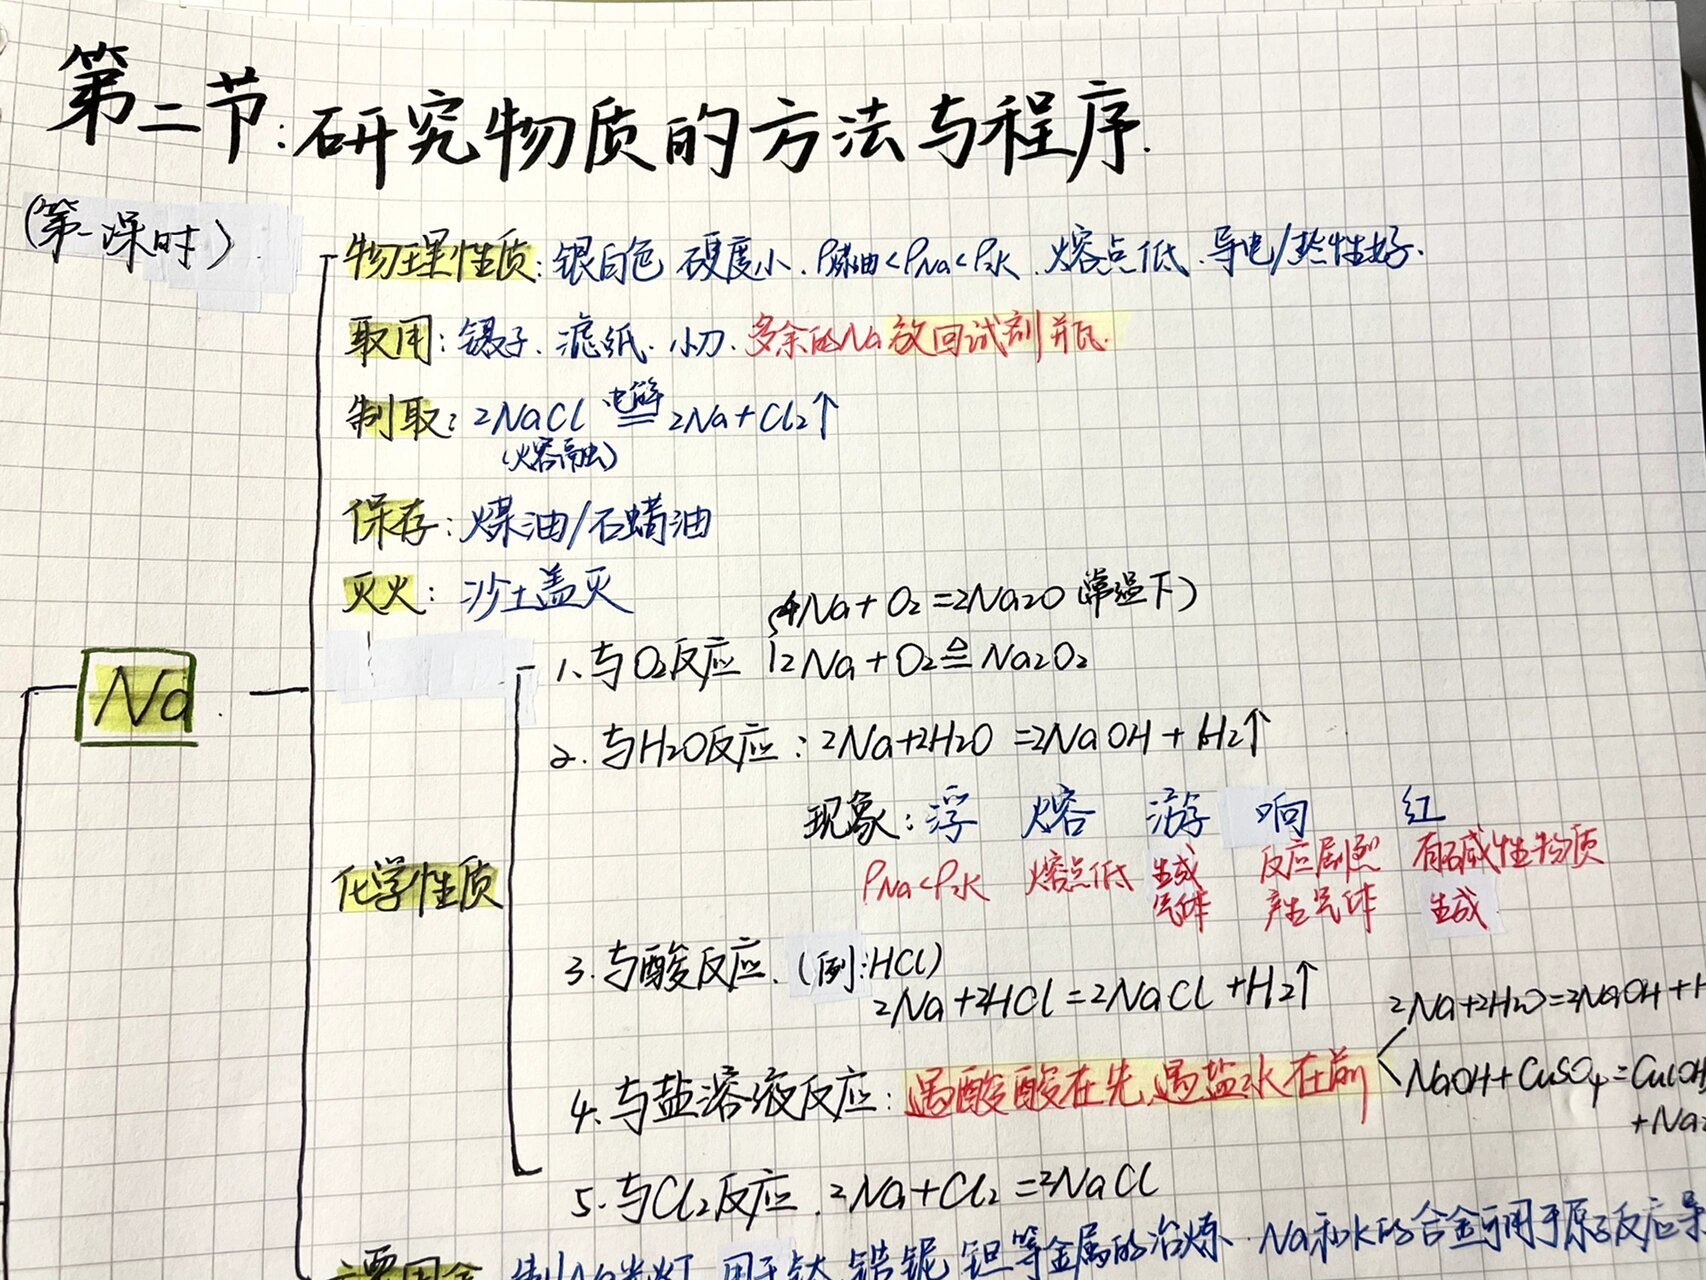 第二节:研究物质的方法与程序.
(第一课时)
物理性质:银白色 硬度小.ρ煤油<ρNa<ρ水.熔点低.导电/热性好.
取用:镊子.滤纸.小刀.多余的Na放回试剂瓶.
制取:2NaCl 电解 2Na+Cl2↑
(熔融)
保存:煤油/石蜡油
灭火:沙土盖灭
4Na+O2=2Na2O(常温下)
1.与O2反应 2Na+O2≜Na2O2
Na
2.与H2O反应:2Na+2H2O=2NaOH+H2↑
现象:浮 熔 游 响 红
ρNa<ρ水 熔点低 生成 反应剧烈 有碱性物质
气体 产生气体 生成
化学性质
3.与酸反应.(例:HCl)
2Na+2HCl=2NaCl+H2↑
2Na+2H2O=2NaOH+H
4.与盐溶液反应:遇酸酸在先,遇盐水在前
NaOH+CuSO4=Cu(OH
+Na2
5.与Cl2反应.2Na+Cl2=2NaCl
主要用途 制Na光灯 用于钛 锆 铌 钽等金属的冶炼.Na和K的合金可用于原子反应